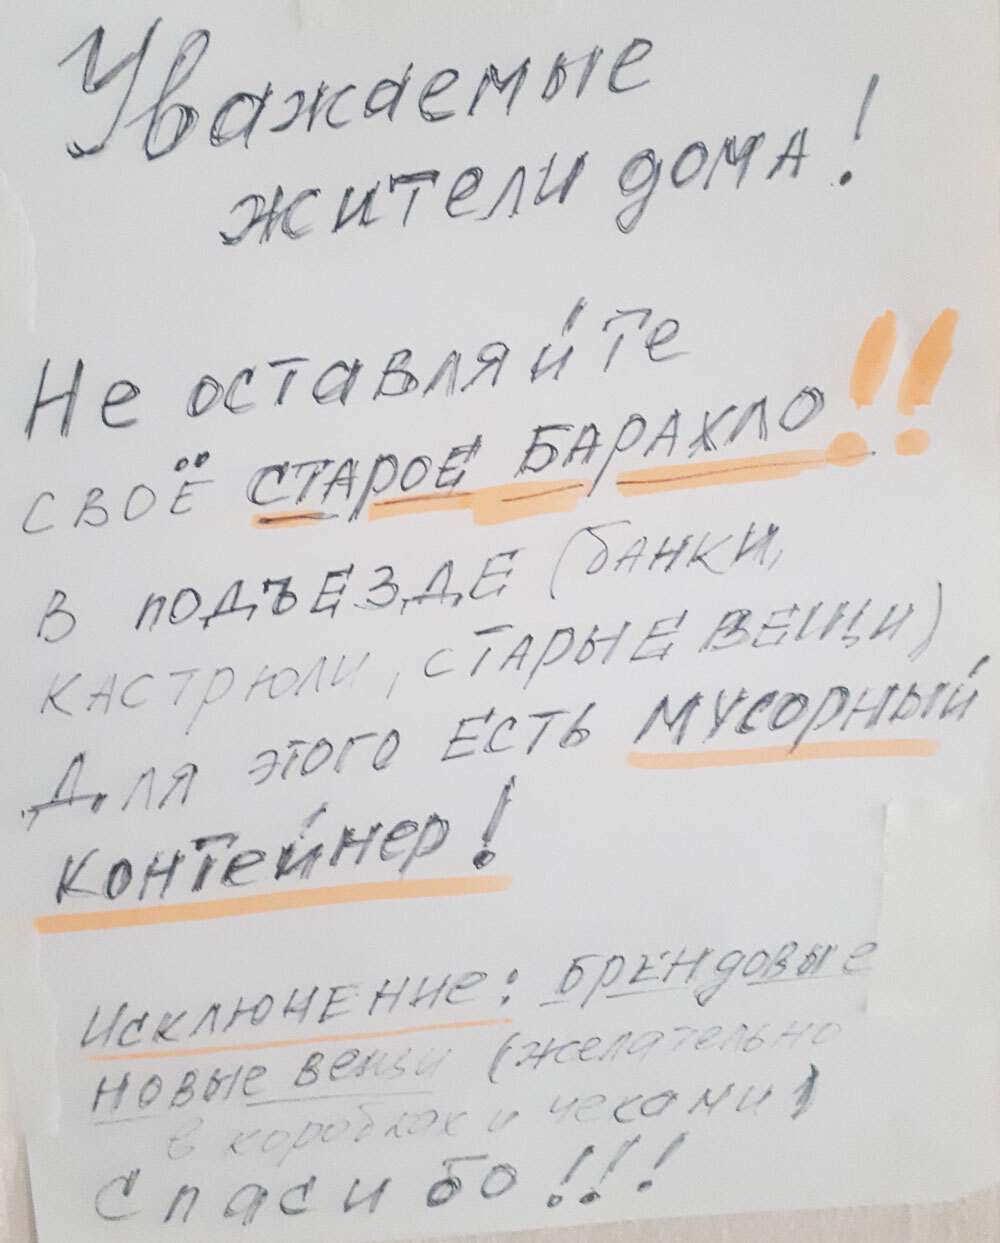 Уважаемые
жители дома!
Не оставляйте
своЁ СТАРОЕ БАРАХЛО!!
в подъЕЗДЕ (банки,
кастрюли, СТАРЫЕ ВЕЩИ)
Для этого ЕСТЬ МУСОРНЫЙ
контейнер!
ИсключЕНие: БРЕНдовые
новые вещи (желательно
в коробках и чеками)
Спасибо!!!